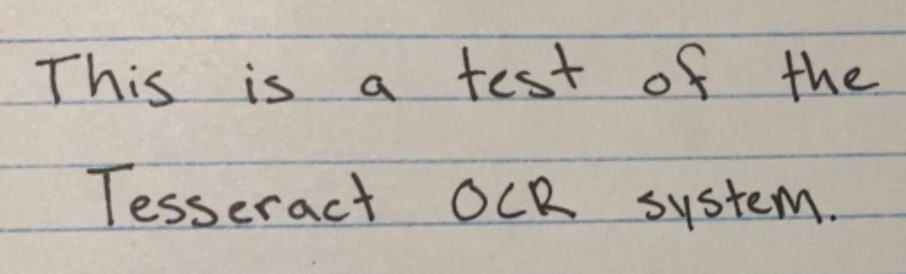 This is a test of the
Tesseract OCR system.